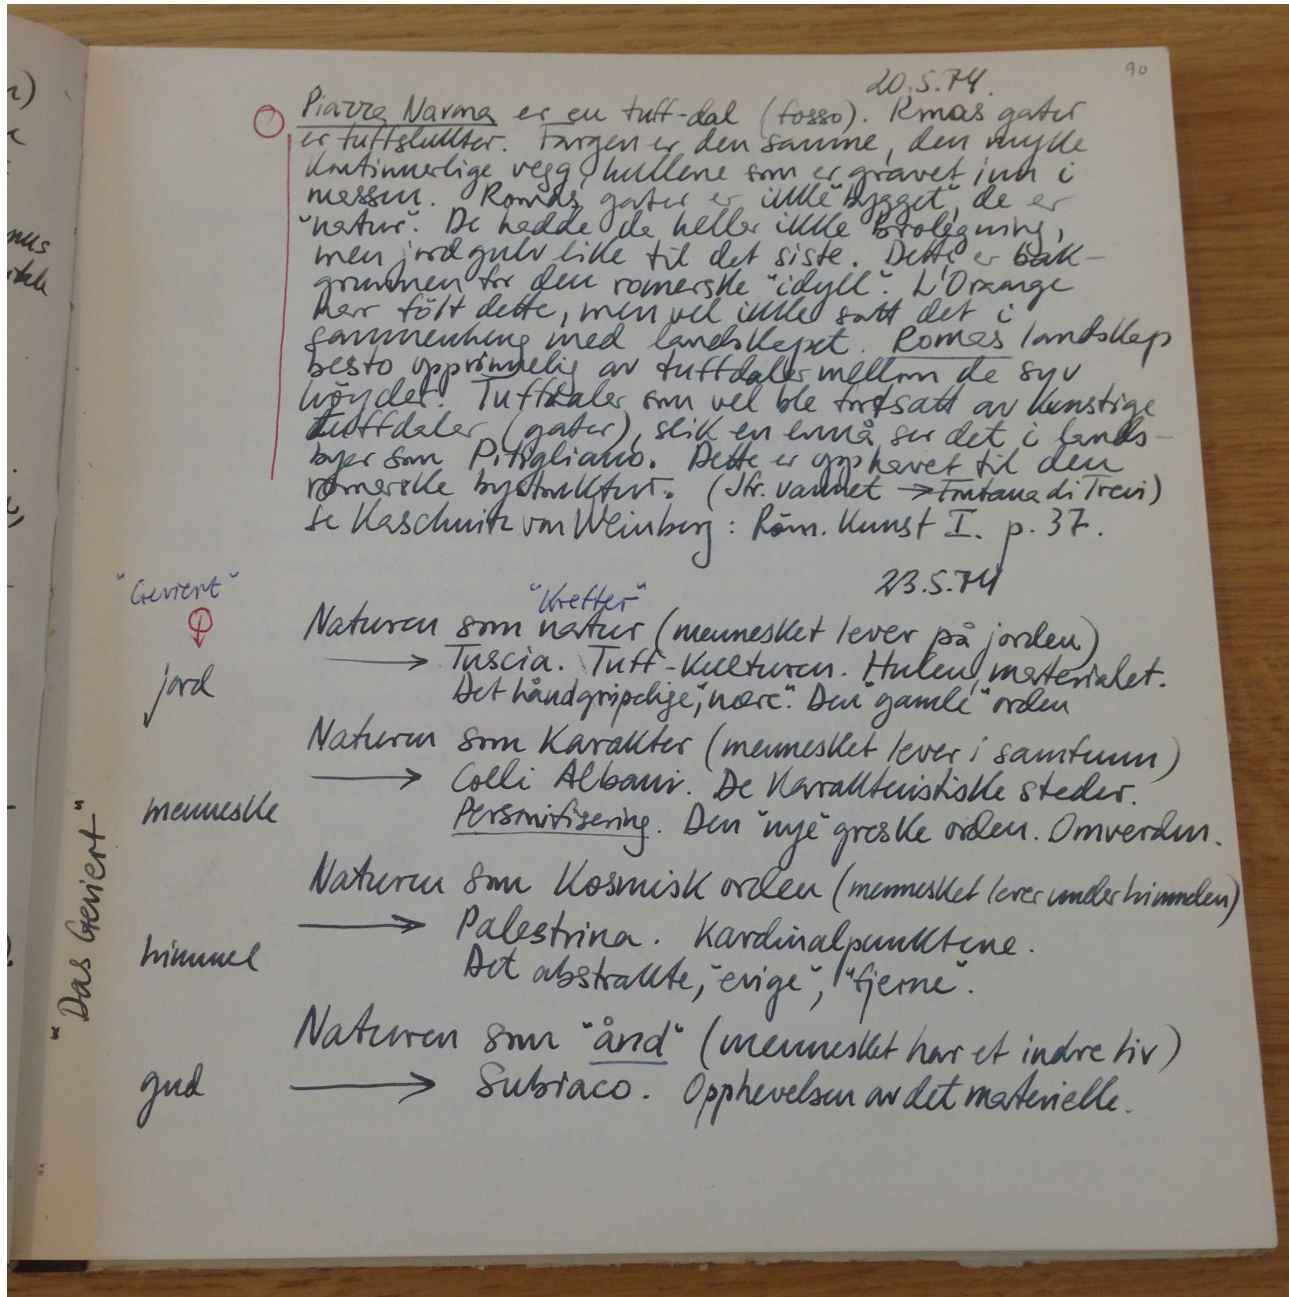 90
20.5.74.
Piazza Navona er en tuff-dal (fosso). Romas gater
er tuffslukter. Fargen er den samme, den myke
kontinuerlige vegg, hullene som er gravet inn i
massen. Romas gater er ikke "bygget", de er
"natur". De hadde da heller ikke brolegning,
men jordgulv like til det siste. Dette er bak-
grunnen for den romerske "idyll". L'Orange
har följt dette, men vel ikke satt det i
sammenheng med landskapet. Romas landskap
besto opprinnelig av tuffdaler mellom de syv
höyder. Tuffdaler som vel ble fortsatt av kunstige
tuffdaler (gater), slik en ennå ser det i lands-
byer som Pitigliano. Dette er opphavet til den
romerske bystruktur. (Jfr. vannet → Fontana di Trevi)
Se Kaschnitz von Weinberg: Röm. Kunst I. p. 37.
23.5.74
"Geviert"
"Krefter"
Naturen som natur (mennesket lever på jorden)
jord → Tuscia. Tuff-kulturen. Hulen, materialet.
Det håndgripelige, "nære". Den "gamle" orden
Naturen som karakter (mennesket lever i samfunn)
menneske → Colli Albani. De karakteristiske steder.
Personifisering. Den "nye" greske orden. Omverden.
Naturen som kosmisk orden (mennesket lever under himmelen)
himmel → Palestrina. Kardinalpunktene.
Det abstrakte, "evige", "fjerne".
Naturen som "ånd" (mennesket har et indre liv)
gud → Subiaco. Opphevelsen av det materielle.
"Das Geviert"